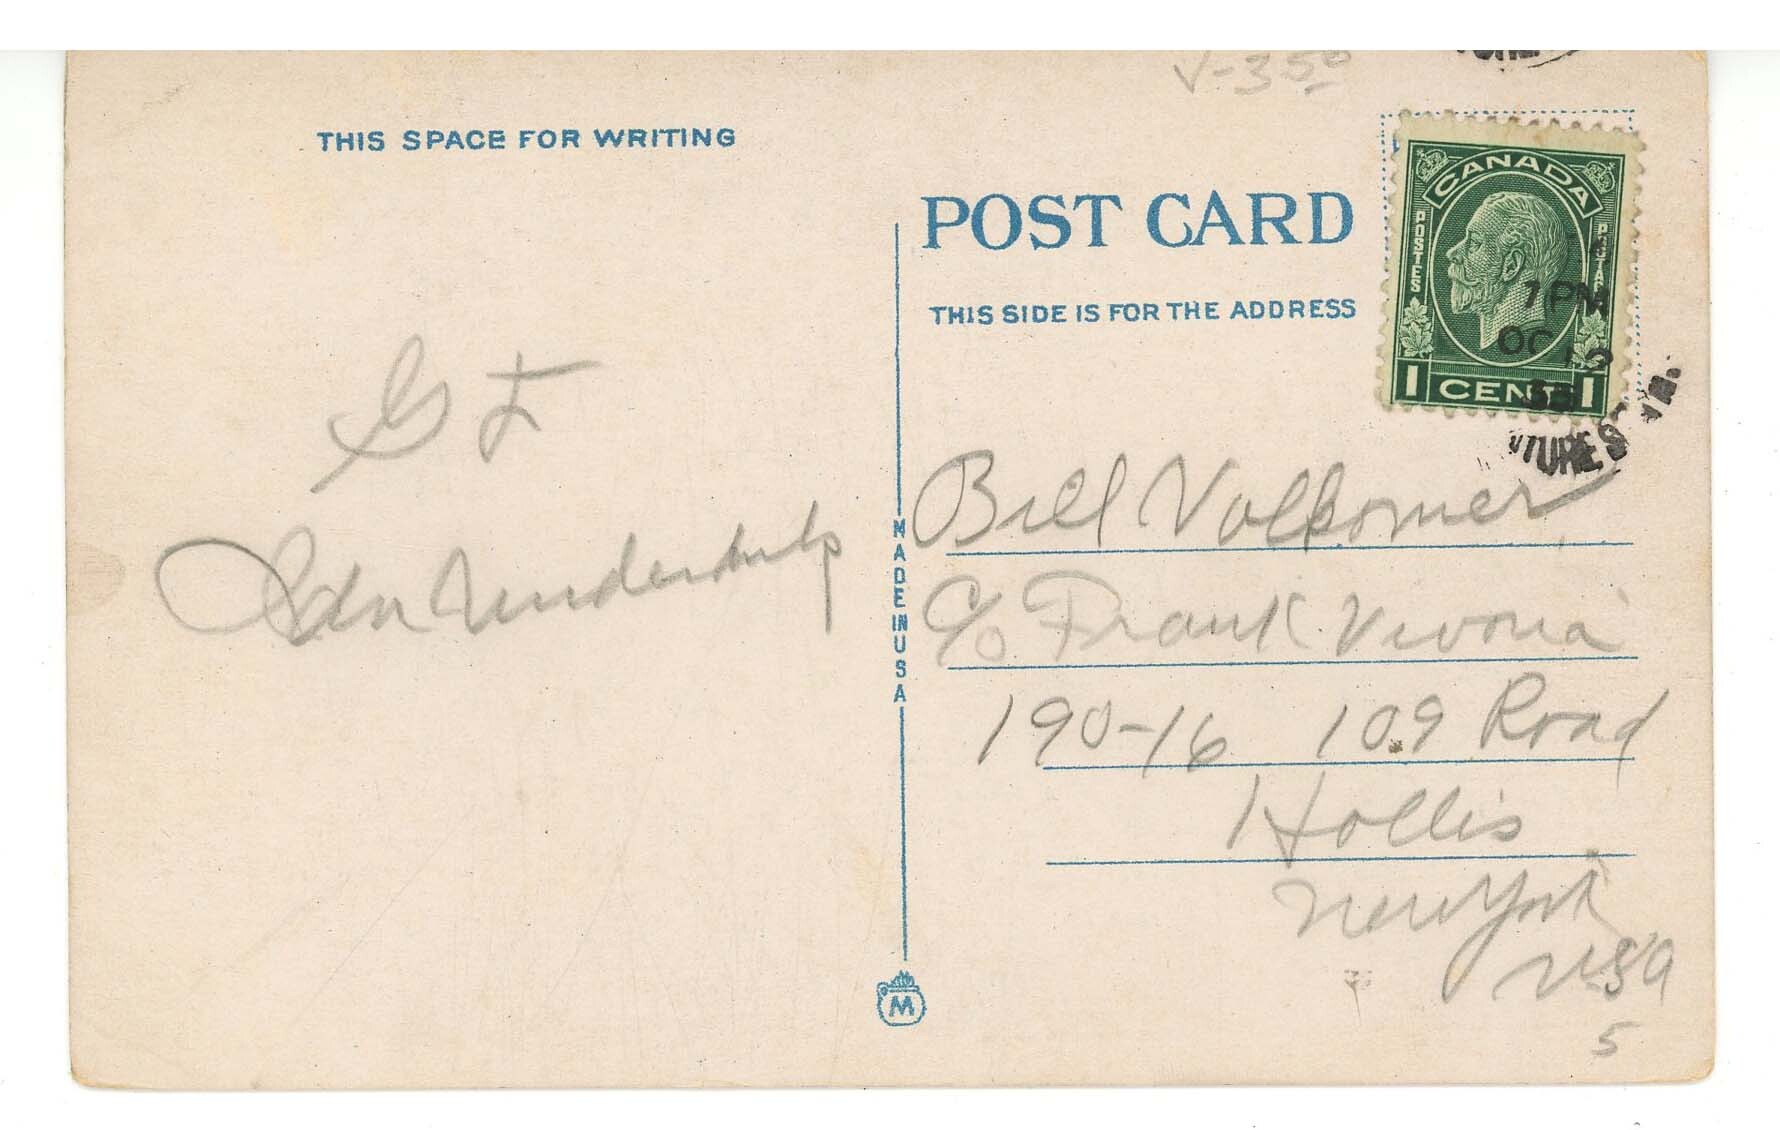 V-3 50
THIS SPACE FOR WRITING
POST CARD
THIS SIDE IS FOR THE ADDRESS
CANADA
POSTES
POSTAGE
1 CENT 1
7 PM
OC 12
G I
Ida
MADE IN USA
Bill Volkomer
c/o Frank Vivona
190-16 109 Road
Hollis
New York
USA
5
M